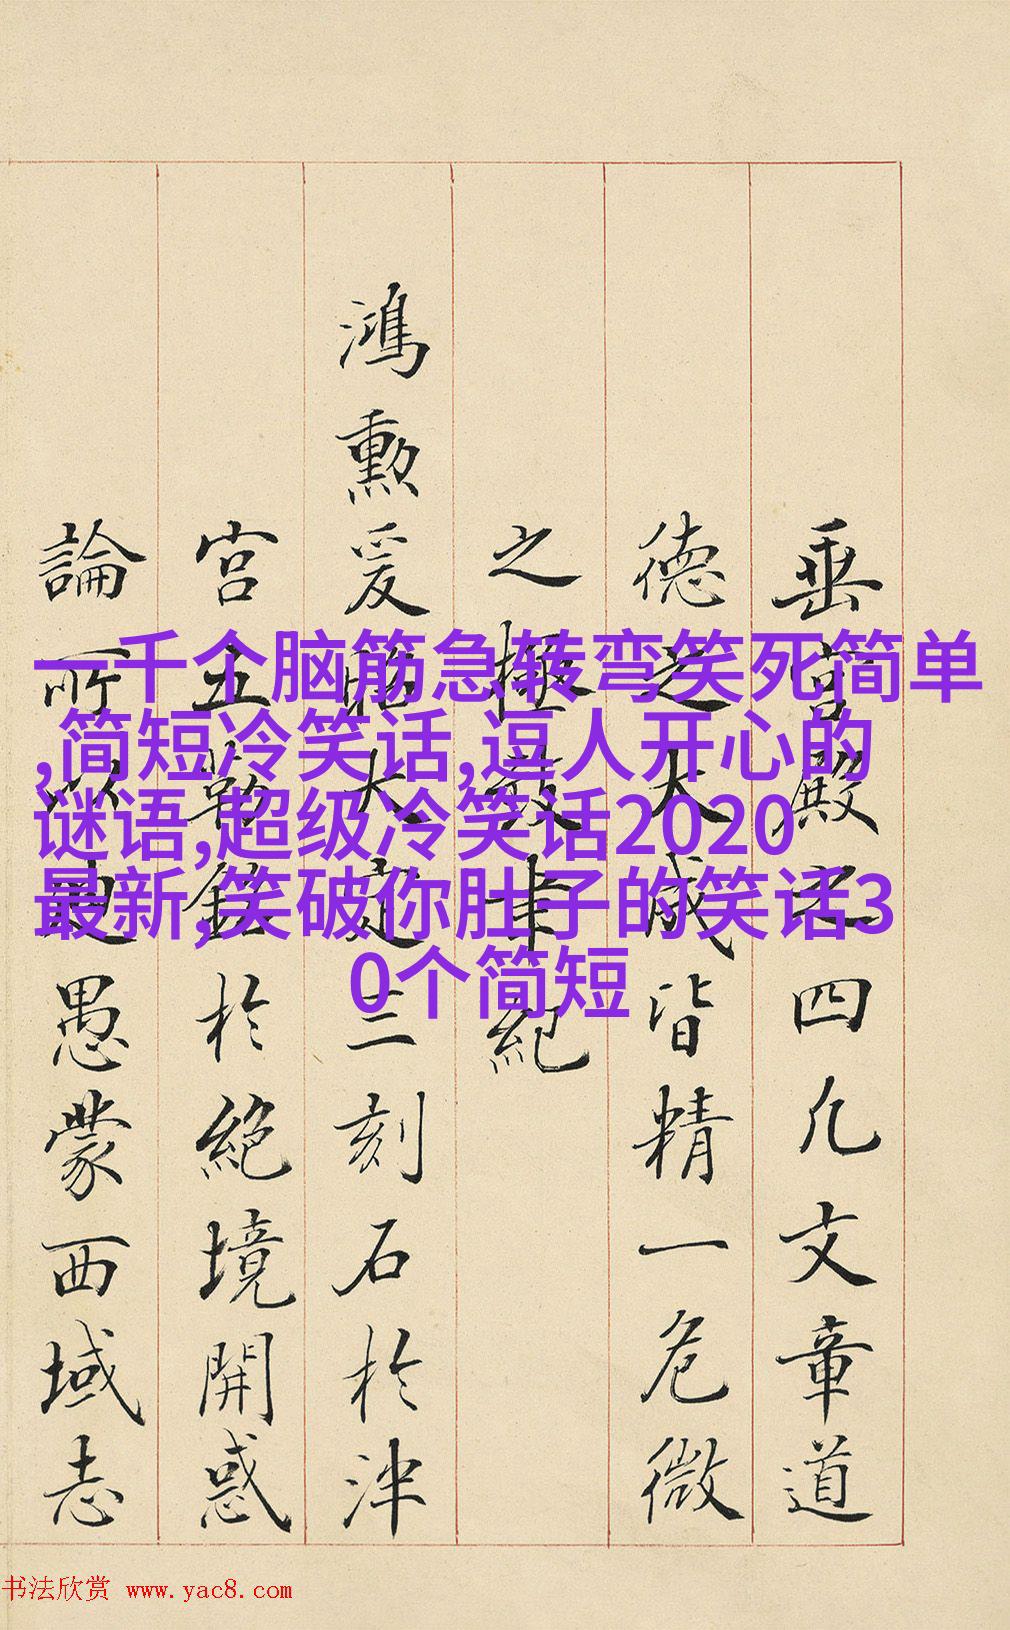 一千个脑筋急转弯笑死简单
,简短冷笑话,逗人开心的
谜语,超级冷笑话2020
最新,笑破你肚子的笑话3
0个简短
垂殿之四几文章道
德之大成皆精一危微
之極致聿紀
鴻勲爰大定三刻石於津
宫五勒銘於絶境開惑
論所以迪愚蒙西域志
书法欣赏 www.yac8.com